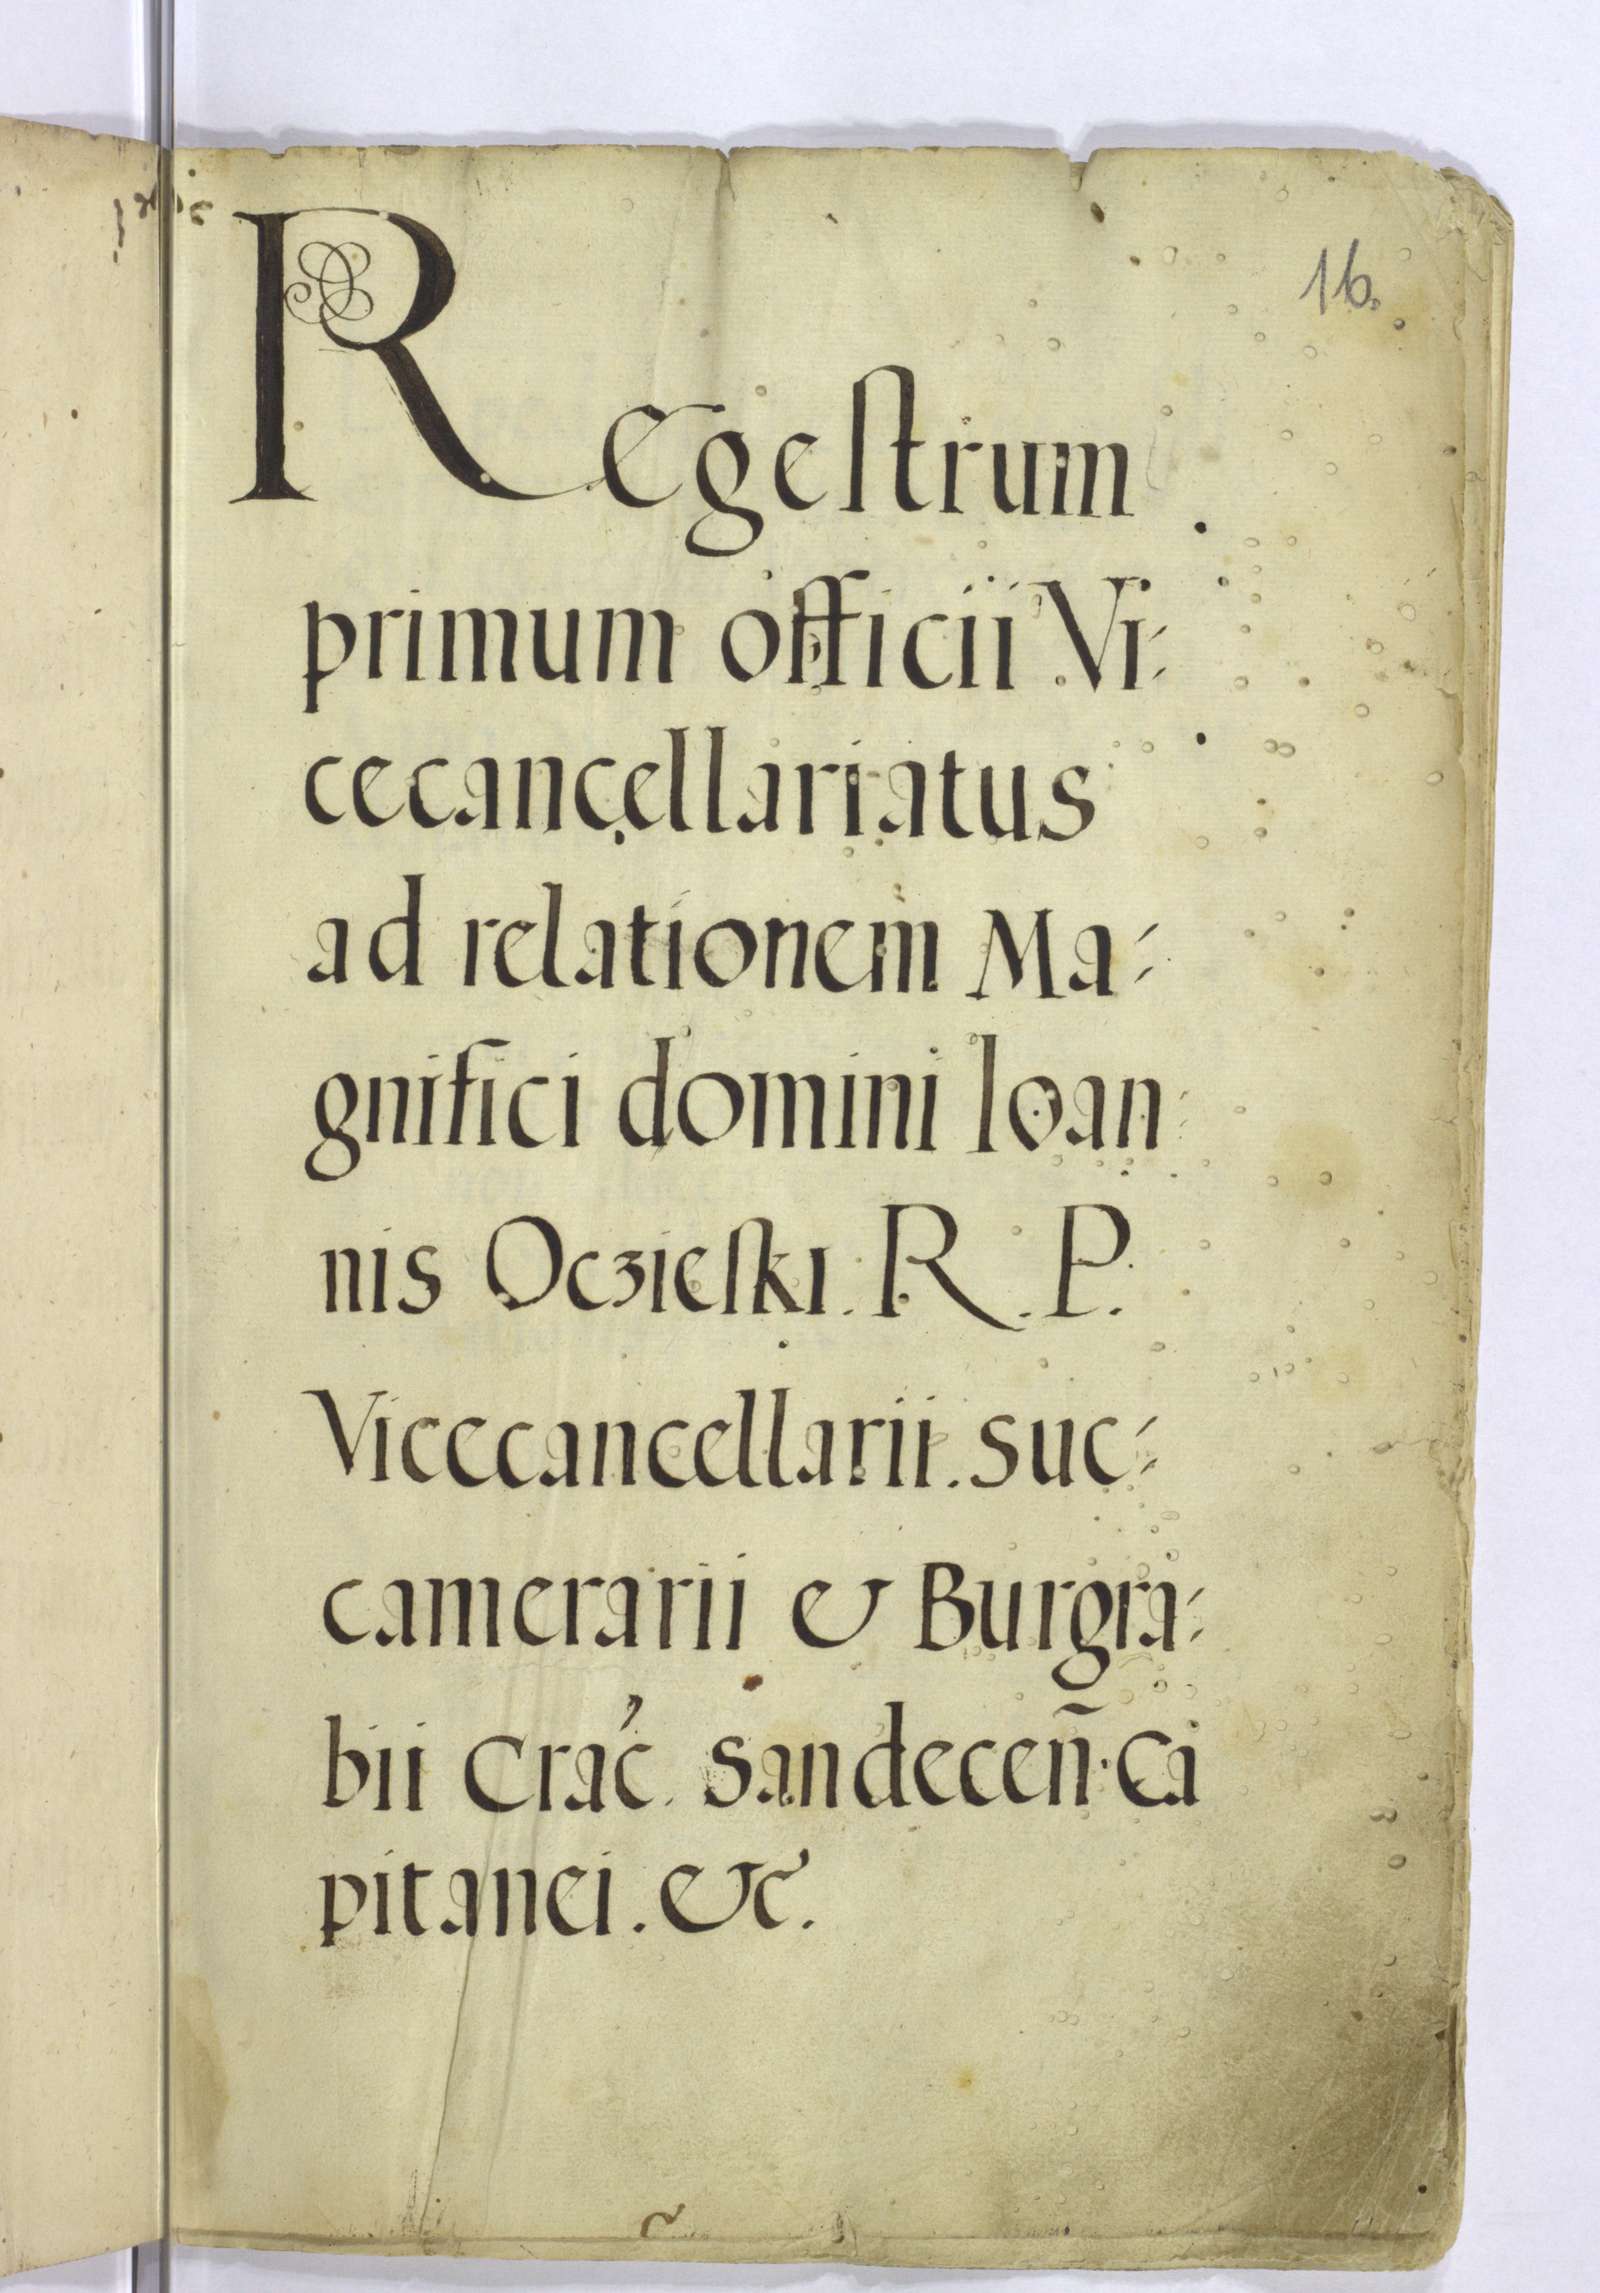 16.
Regestrum
primum officii Vi-
cecancellariatus
ad relationem Ma-
gnifici domini Ioan-
nis Oczieski. R. P.
Vicecancellarii. Suc-
camerarii & Burgra-
bii Crac̓. Sandeceñ. Ca
pitanei. &c.